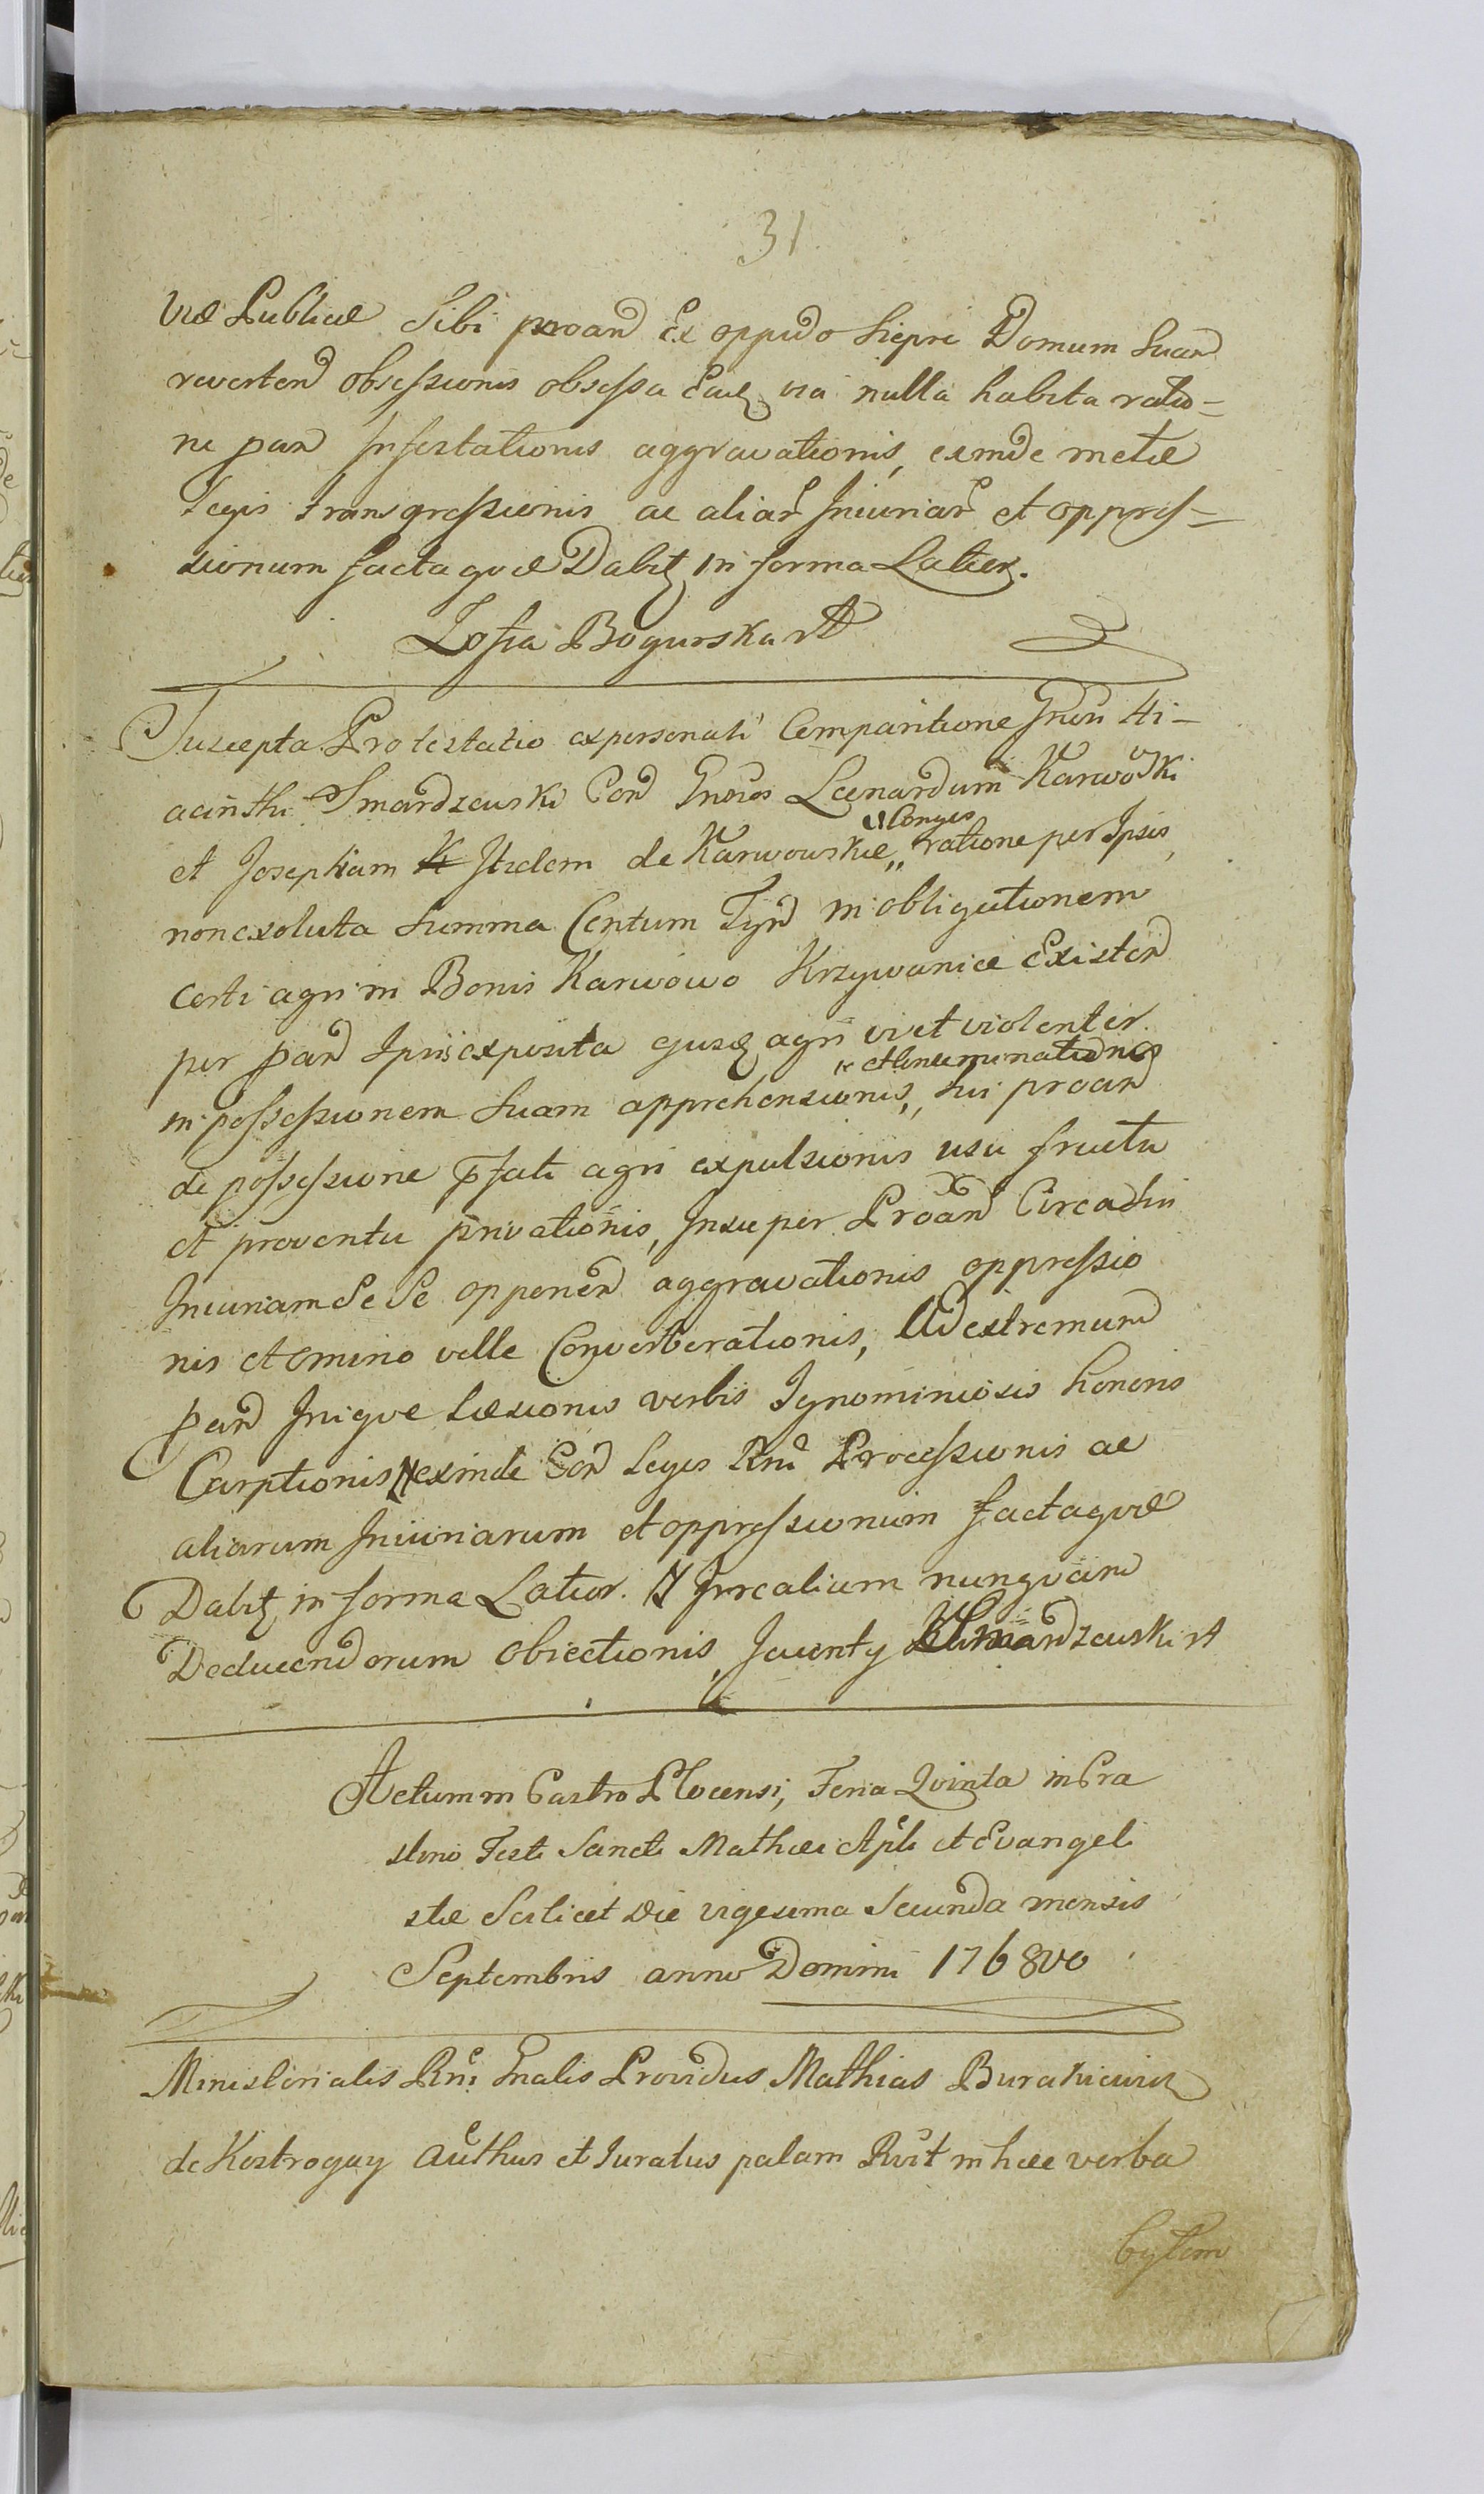 31
viæ Publicæ Sibi proand Ex oppido Siepre Domum Suam
revertend obsessionis obsessa Eaq via nulla habita ratio=
ne pan Infestationis aggravationis, exinde metæ
Legis transgressionis ac aliar Iniuriar et oppres=
sionum factaqve Dabit in forma Latior.
Zofia Bogurska
Suscepta Protestatio expersonali Comparitione Gnosi Hi-
acinthi Smardzewski Con Gnosos Leonardum Karwoski
Conges
et Josepham Itzdem de Karwowskie,, ratione per Ipsis
nonexoluta Summa Centum Tynf in obligationem
certi agri in Bonis Karwowo Krzywanice Existen
per pand Ipsis exposita ejusq agri vi et violenter
et Inseminationis
in possessionem Suam apprehensionis,, Sui proand
de possessione pfati agri expulsionis usu fructu
et proventu privationis, Insuper Proand Circa sui
Iniuriam Se Se opponend aggravationis oppressio
nis et omino velle Converberationis, Ad extremum
pand Iniqve Læsionis verbis Ignominiosis honoris
Carptionis exinde Con Leges Rni Processionis ac
aliarum Iniuriarum et oppressionum factaqve
Dabit in forma Latior. Irrcalium nunqvam
Deducendorum obiectionis, Jacenty Smardzewski
Actum in Castro Plocensi, Feria Qvinta in Cra
stino Festi Sancti Mathæi Apli et Evangeli
stæ Scilicet Die vigesima Secunda mensis
Septembris anno Domini 1768vo
Ministerialis Rni Gnalis Providus Mathias Burakiewicz
de Kostrogay Authus et Juratus palam Rvit in hæc verba
bytem